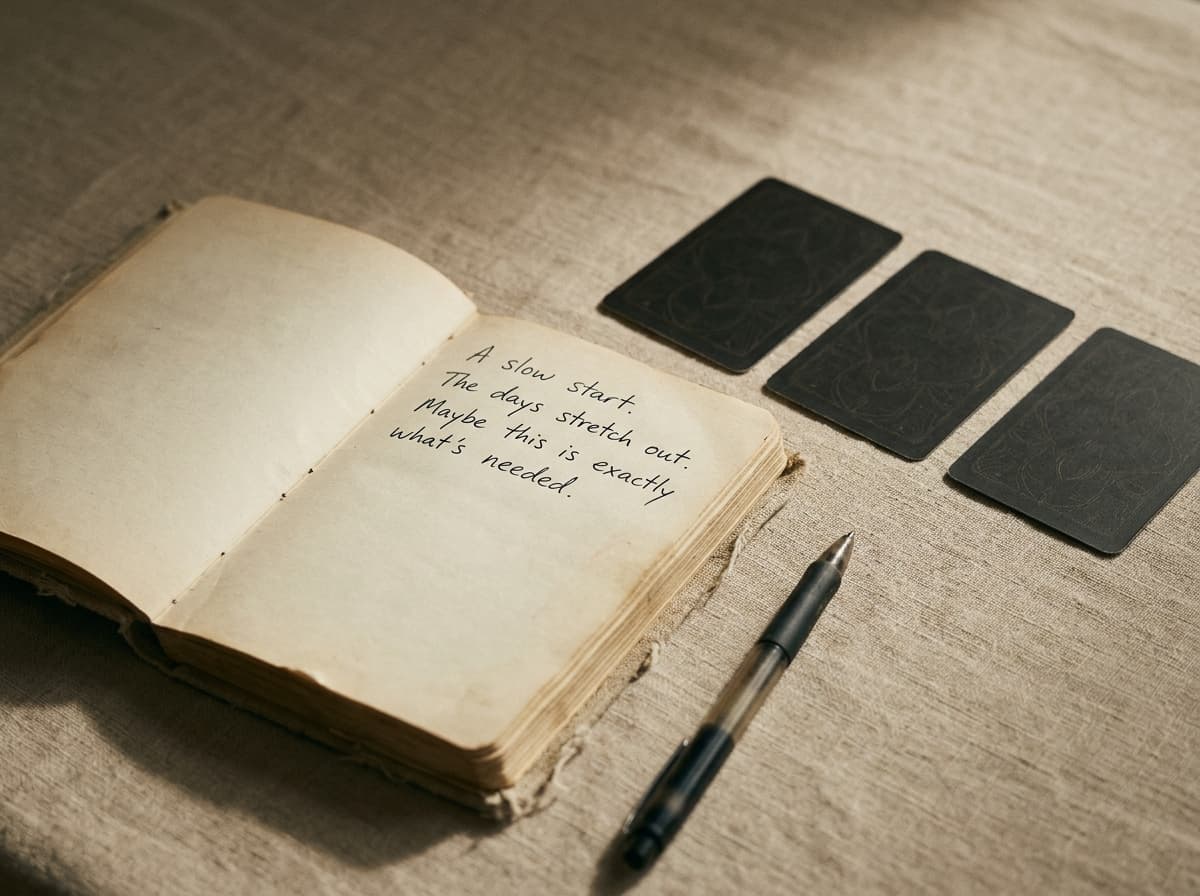 A slow start.
The days stretch out.
Maybe this is exactly
what's needed.